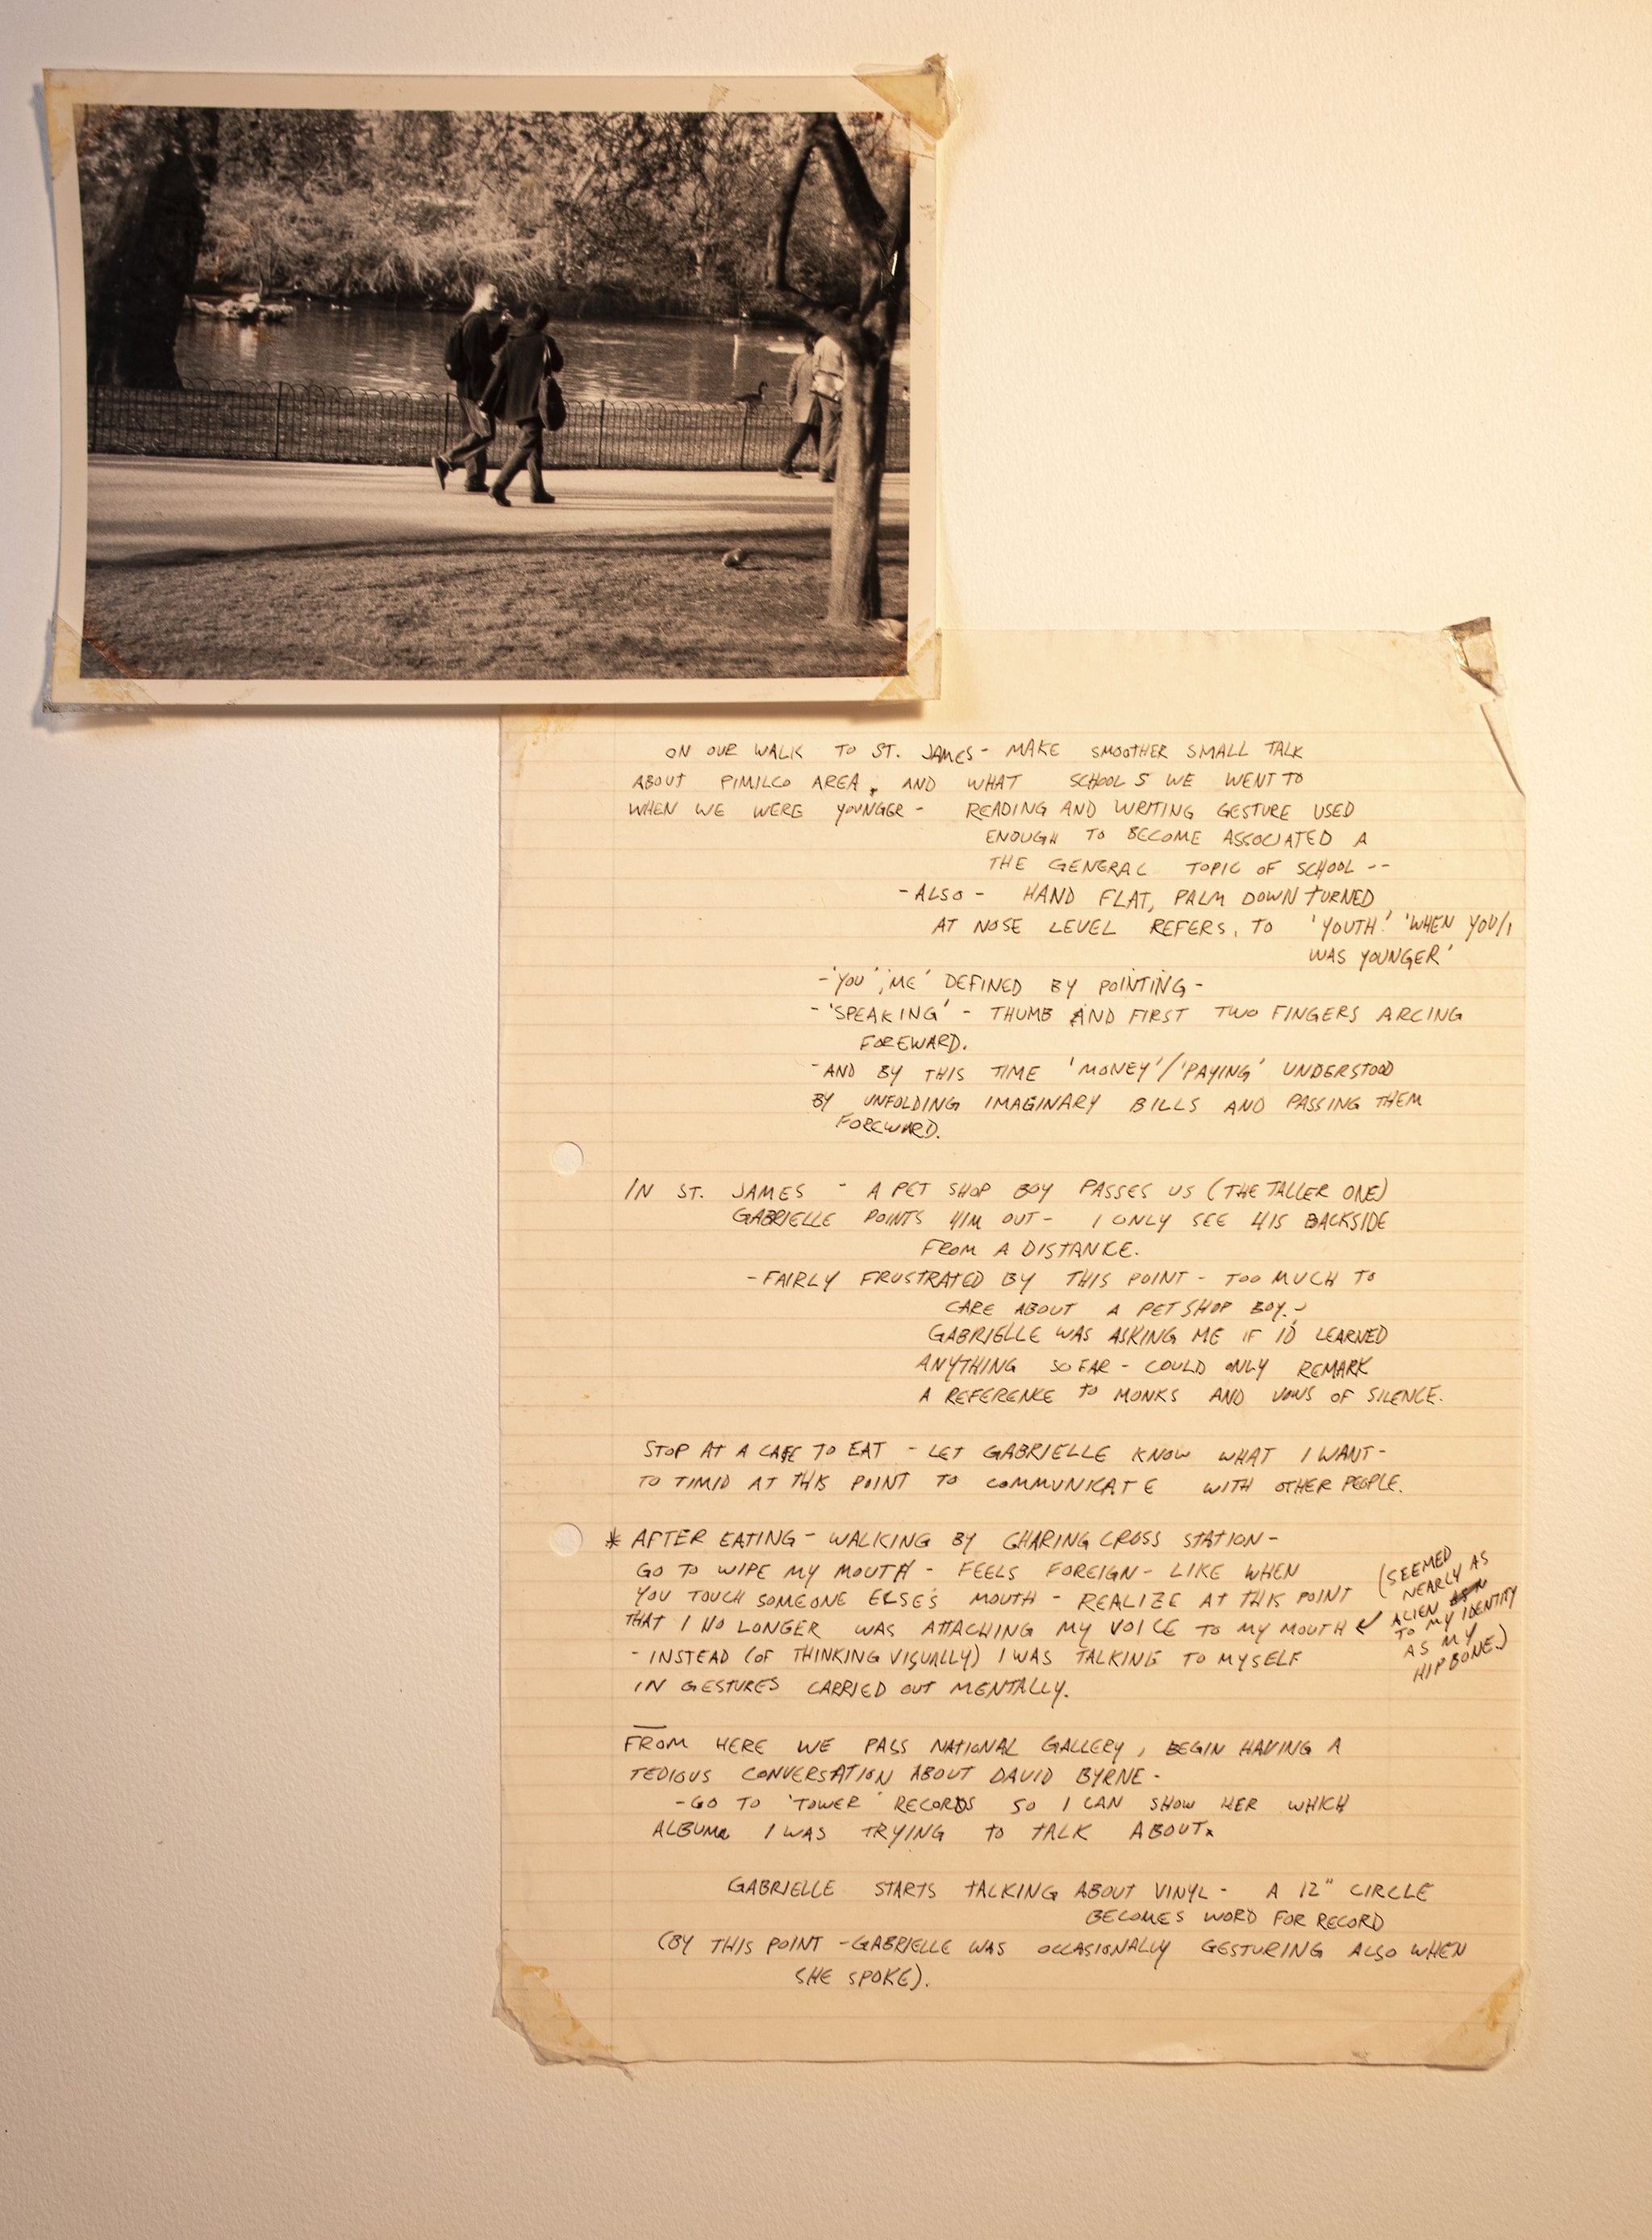 ON OUR WALK TO ST. JAMES - MAKE SMOOTHER SMALL TALK
ABOUT PIMILCO AREA, AND WHAT SCHOOLS WE WENT TO
WHEN WE WERE YOUNGER - READING AND WRITING GESTURE USED
ENOUGH TO BECOME ASSOCIATED A
THE GENERAL TOPIC OF SCHOOL --
- ALSO - HAND FLAT, PALM DOWN TURNED
AT NOSE LEVEL REFERS, TO 'YOUTH' 'WHEN YOU/I
WAS YOUNGER'
- 'YOU', 'ME' DEFINED BY POINTING -
- 'SPEAKING' - THUMB AND FIRST TWO FINGERS ARCING
FOREWARD.
- AND BY THIS TIME 'MONEY'/'PAYING' UNDERSTOOD
BY UNFOLDING IMAGINARY BILLS AND PASSING THEM
FOREWARD.
IN ST. JAMES - A PET SHOP BOY PASSES US (THE TALLER ONE)
GABRIELLE POINTS HIM OUT - I ONLY SEE HIS BACKSIDE
FROM A DISTANCE.
- FAIRLY FRUSTRATED BY THIS POINT - TOO MUCH TO
CARE ABOUT A PET SHOP BOY.
GABRIELLE WAS ASKING ME IF I'D LEARNED
ANYTHING SO FAR - COULD ONLY REMARK
A REFERENCE TO MONKS AND VOWS OF SILENCE.
STOP AT A CAFE TO EAT - LET GABRIELLE KNOW WHAT I WANT -
TO TIMID AT THIS POINT TO COMMUNICATE WITH OTHER PEOPLE.
* AFTER EATING - WALKING BY CHARING CROSS STATION -
GO TO WIPE MY MOUTH - FEELS FOREIGN - LIKE WHEN
YOU TOUCH SOMEONE ELSE'S MOUTH - REALIZE AT THIS POINT
THAT I NO LONGER WAS ATTACHING MY VOICE TO MY MOUTH
(SEEMED
NEARLY AS
ALIEN
TO MY IDENTITY
AS MY
HIPBONE.)
- INSTEAD (OF THINKING VISUALLY) I WAS TALKING TO MYSELF
IN GESTURES CARRIED OUT MENTALLY.
FROM HERE WE PASS NATIONAL GALLERY, BEGIN HAVING A
TEDIOUS CONVERSATION ABOUT DAVID BYRNE -
- GO TO 'TOWER' RECORDS SO I CAN SHOW HER WHICH
ALBUM I WAS TRYING TO TALK ABOUT.
GABRIELLE STARTS TALKING ABOUT VINYL - A 12" CIRCLE
BECOMES WORD FOR RECORD
(BY THIS POINT - GABRIELLE WAS OCCASIONALLY GESTURING ALSO WHEN
SHE SPOKE).